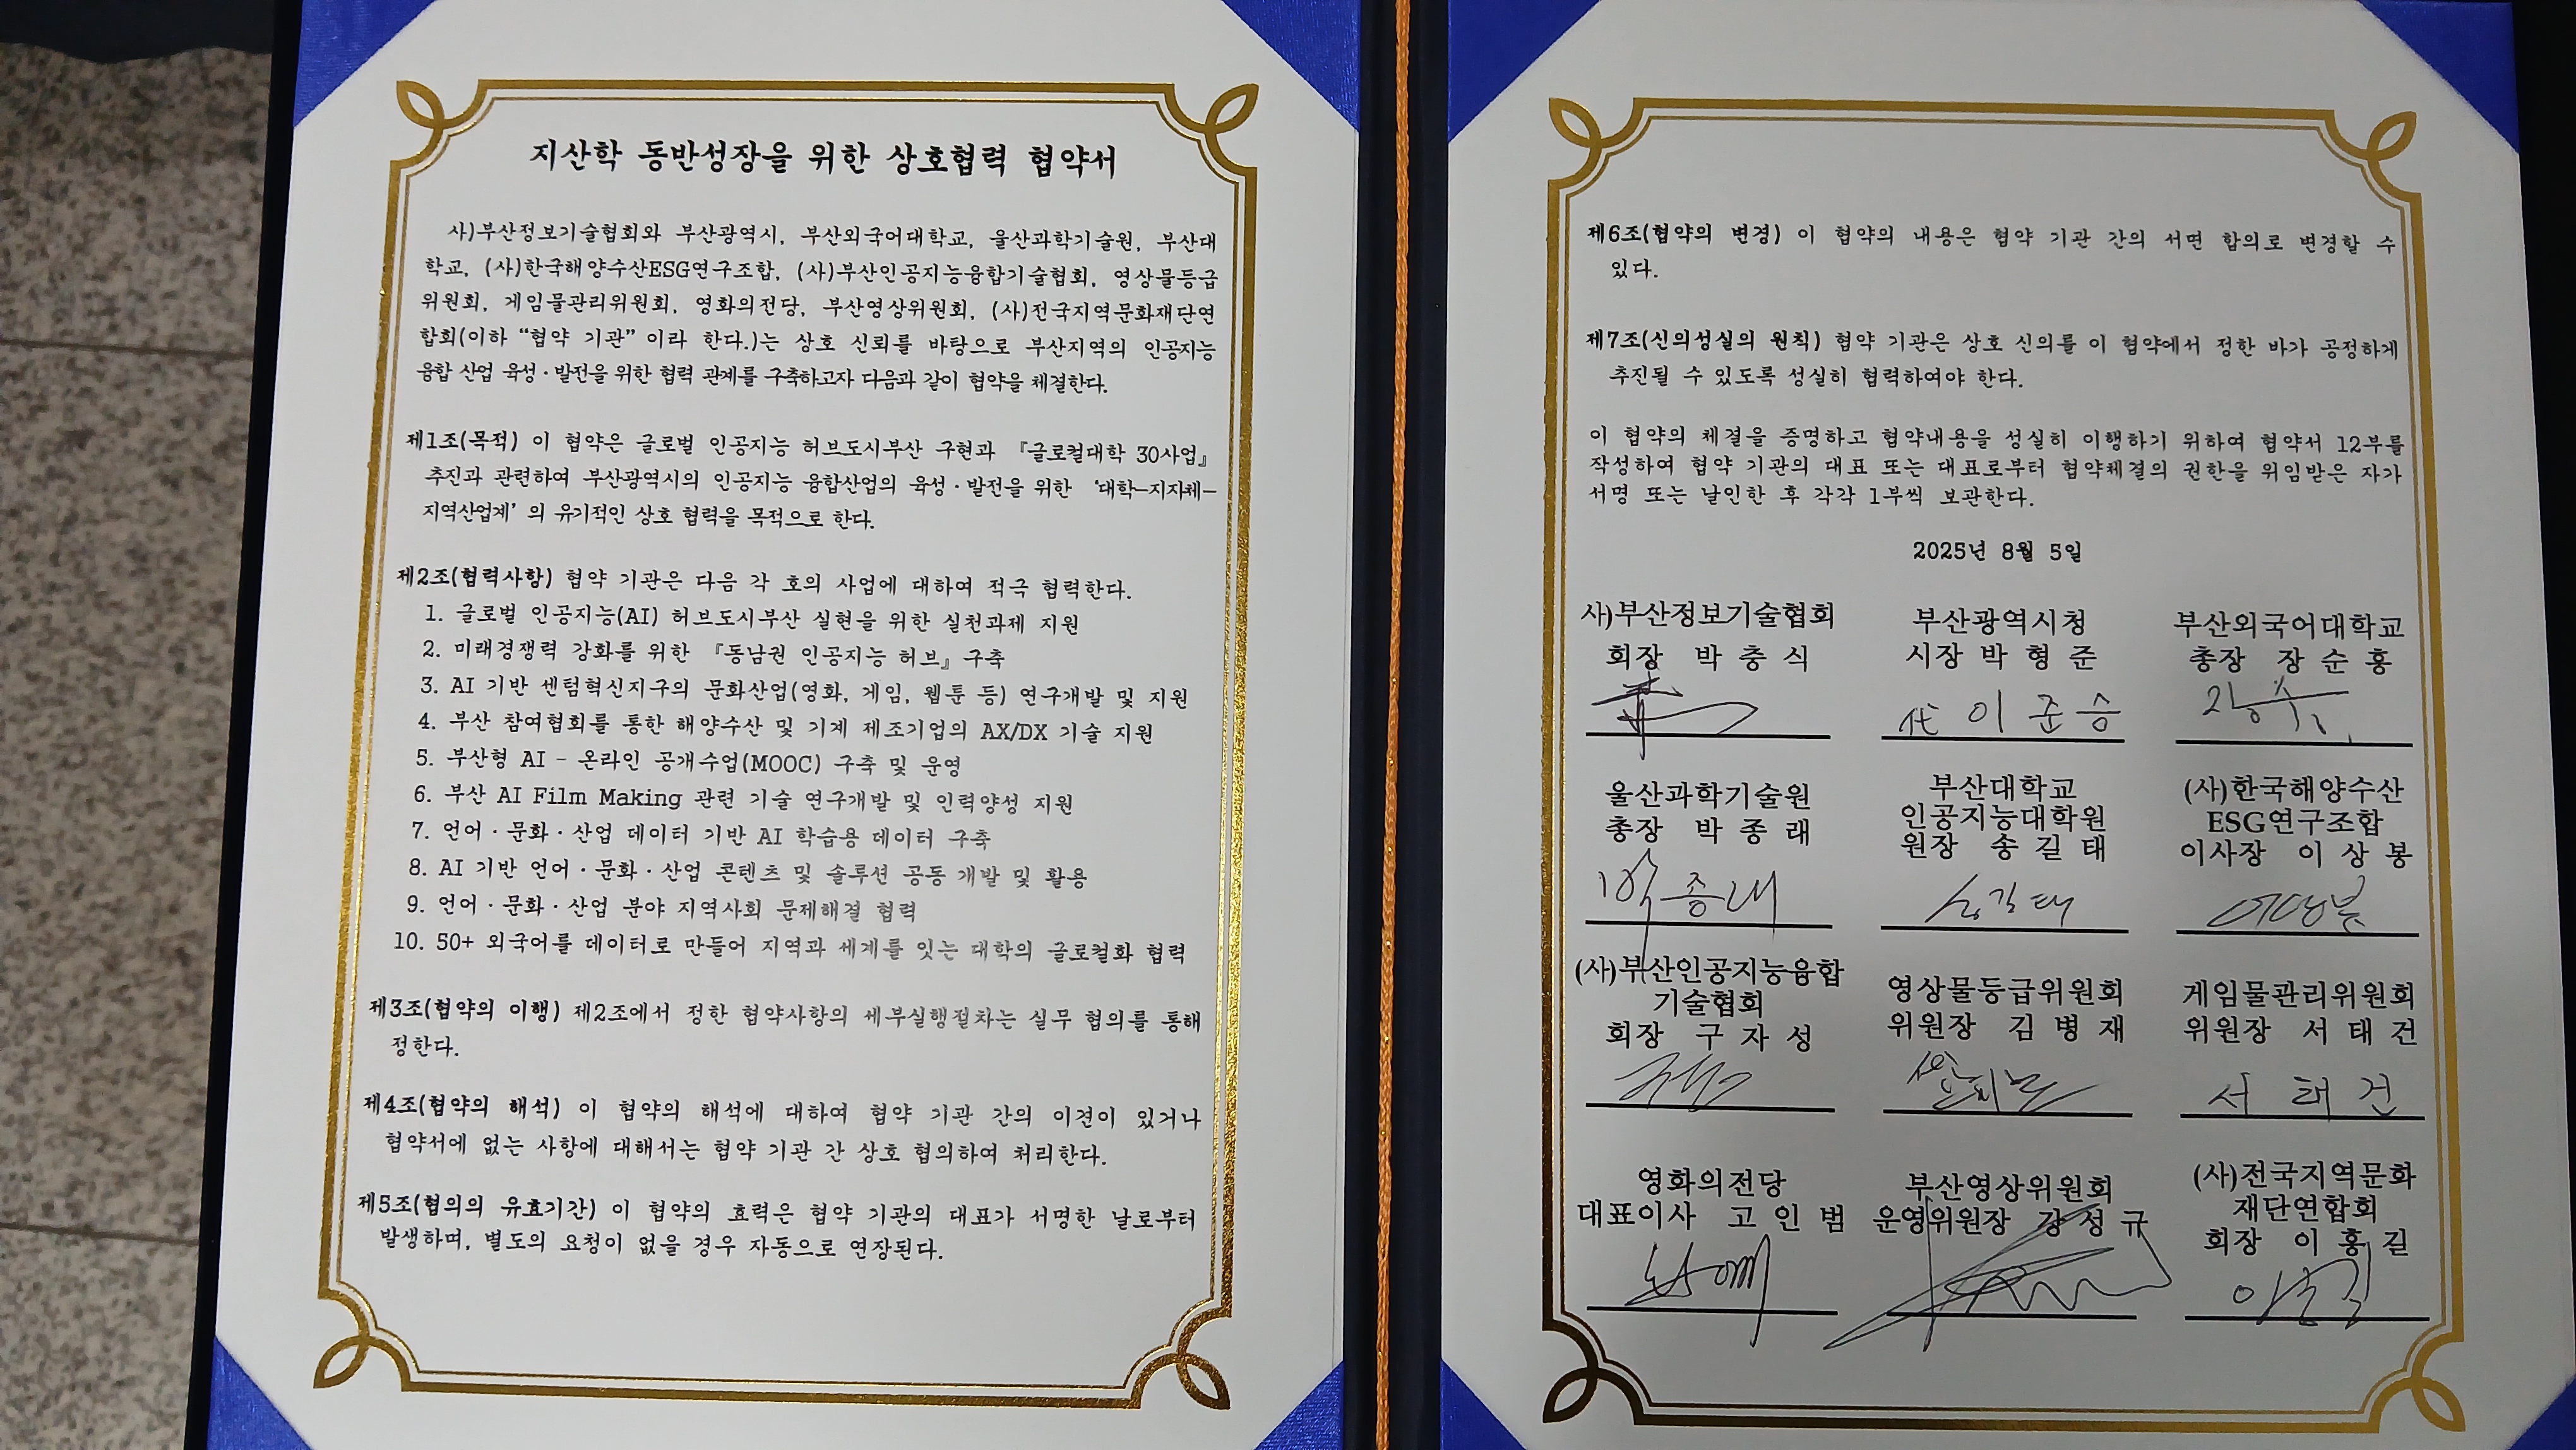 지산학 동반성장을 위한 상호협력 협약서
사)부산정보기술협회와 부산광역시, 부산외국어대학교, 울산과학기술원, 부산대
학교, (사)한국해양수산ESG연구조합, (사)부산인공지능융합기술협회, 영상물등급
위원회, 게임물관리위원회, 영화의전당, 부산영상위원회, (사)전국지역문화재단연
합회(이하 “협약 기관” 이라 한다.)는 상호 신뢰를 바탕으로 부산지역의 인공지능
융합 산업 육성·발전을 위한 협력 관계를 구축하고자 다음과 같이 협약을 체결한다.
제1조(목적) 이 협약은 글로벌 인공지능 허브도시부산 구현과 『글로컬대학 30사업』
추진과 관련하여 부산광역시의 인공지능 융합산업의 육성·발전을 위한 ‘대학-지자체-
지역산업계’ 의 유기적인 상호 협력을 목적으로 한다.
제2조(협력사항) 협약 기관은 다음 각 호의 사업에 대하여 적극 협력한다.
1. 글로벌 인공지능(AI) 허브도시부산 실현을 위한 실천과제 지원
2. 미래경쟁력 강화를 위한 『동남권 인공지능 허브』 구축
3. AI 기반 센텀혁신지구의 문화산업(영화, 게임, 웹툰 등) 연구개발 및 지원
4. 부산 참여협회를 통한 해양수산 및 기계 제조기업의 AX/DX 기술 지원
5. 부산형 AI - 온라인 공개수업(MOOC) 구축 및 운영
6. 부산 AI Film Making 관련 기술 연구개발 및 인력양성 지원
7. 언어·문화·산업 데이터 기반 AI 학습용 데이터 구축
8. AI 기반 언어·문화·산업 콘텐츠 및 솔루션 공동 개발 및 활용
9. 언어·문화·산업 분야 지역사회 문제해결 협력
10. 50+ 외국어를 데이터로 만들어 지역과 세계를 잇는 대학의 글로컬화 협력
제3조(협약의 이행) 제2조에서 정한 협약사항의 세부실행절차는 실무 협의를 통해
정한다.
제4조(협약의 해석) 이 협약의 해석에 대하여 협약 기관 간의 이견이 있거나
협약서에 없는 사항에 대해서는 협약 기관 간 상호 협의하여 처리한다.
제5조(협의의 유효기간) 이 협약의 효력은 협약 기관의 대표가 서명한 날로부터
발생하며, 별도의 요청이 없을 경우 자동으로 연장된다.
제6조(협약의 변경) 이 협약의 내용은 협약 기관 간의 서면 합의로 변경할 수
있다.
제7조(신의성실의 원칙) 협약 기관은 상호 신의를 이 협약에서 정한 바가 공정하게
추진될 수 있도록 성실히 협력하여야 한다.
이 협약의 체결을 증명하고 협약내용을 성실히 이행하기 위하여 협약서 12부를
작성하여 협약 기관의 대표 또는 대표로부터 협약체결의 권한을 위임받은 자가
서명 또는 날인한 후 각각 1부씩 보관한다.
2025년 8월 5일
사)부산정보기술협회
회장 박 충 식
부산광역시청
시장 박 형 준
代 이 준 승
부산외국어대학교
총장 장 순 흥
울산과학기술원
총장 박 종 래
박종래
부산대학교
인공지능대학원
원장 송 길 태
송길태
(사)한국해양수산
ESG연구조합
이사장 이 상 봉
이상봉
(사)부산인공지능융합
기술협회
회장 구 자 성
영상물등급위원회
위원장 김 병 재
게임물관리위원회
위원장 서 태 건
서 태 건
영화의전당
대표이사 고 인 범
부산영상위원회
운영위원장 강 성 규
(사)전국지역문화
재단연합회
회장 이 홍 길